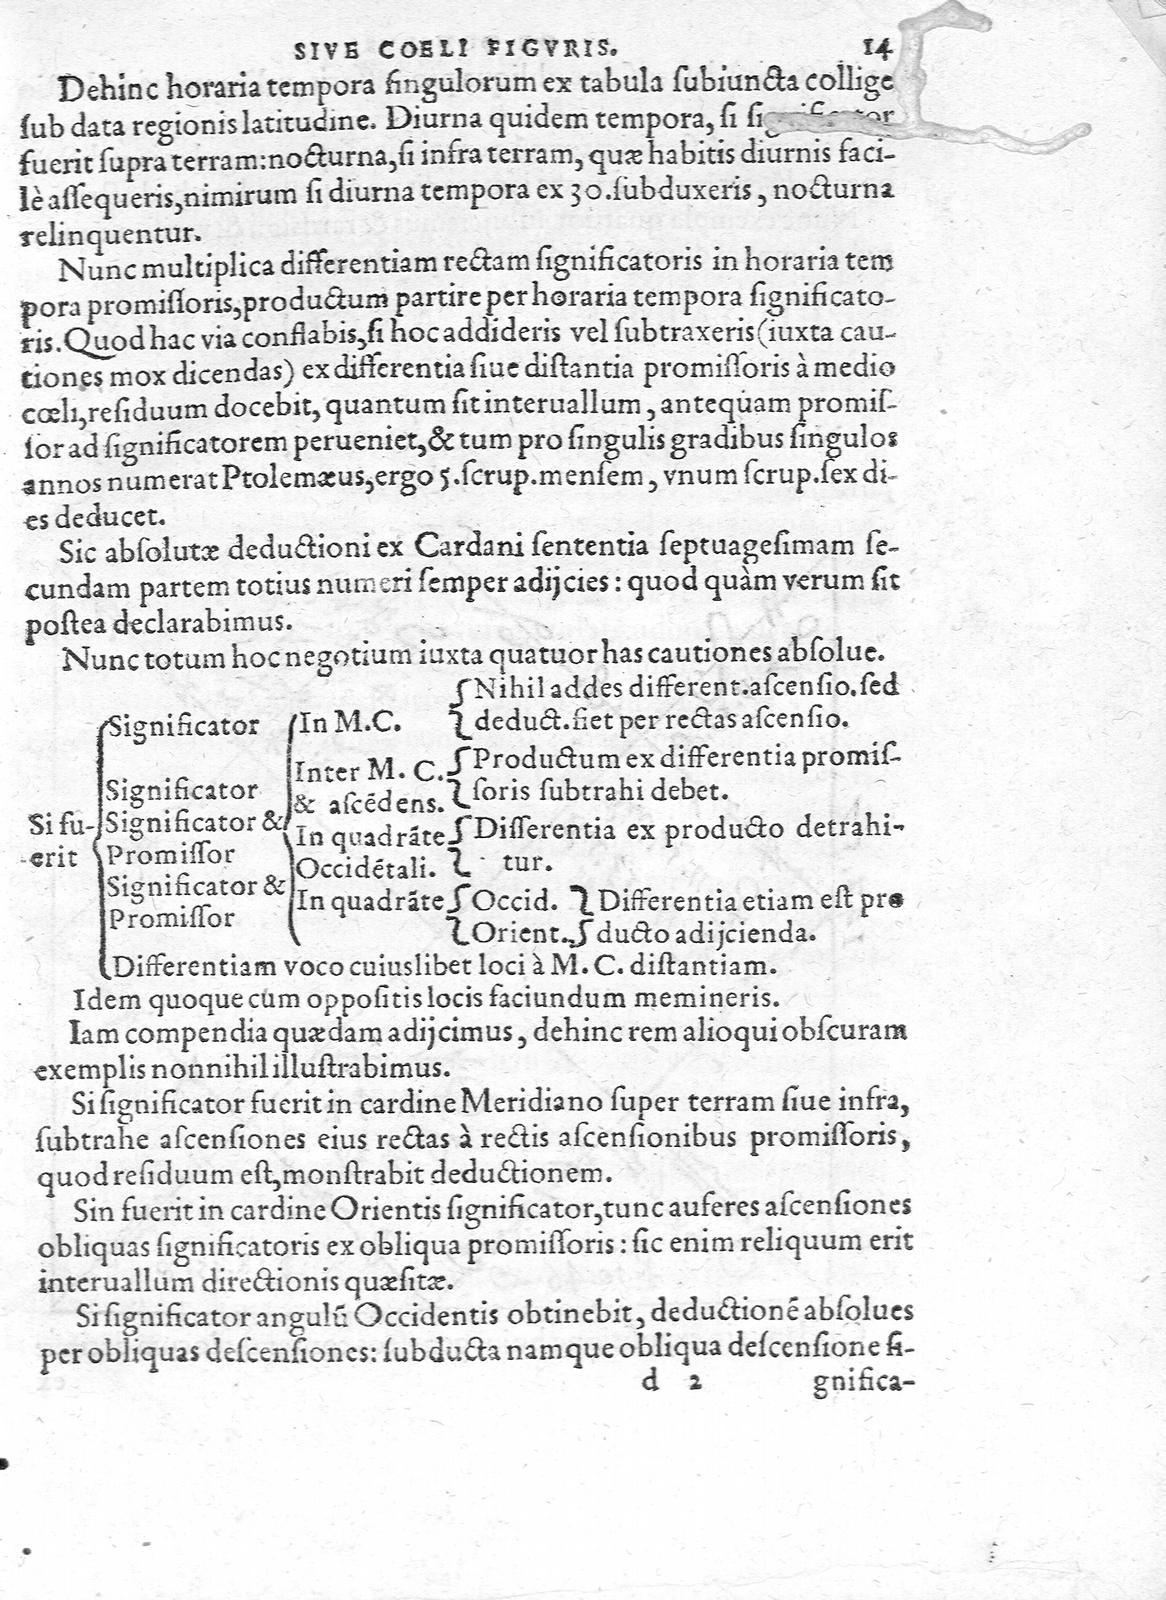 SIVE COELI FIGVRIS. 14
Dehinc horaria tempora ſingulorum ex tabula ſubiuncta collige
ſub data regionis latitudine. Diurna quidem tempora, ſi ſignificator
fuerit ſupra terram: nocturna, ſi infra terram, quæ habitis diurnis faci-
lè aſſequeris, nimirum ſi diurna tempora ex 30. ſubduxeris, nocturna
relinquentur.
Nunc multiplica differentiam rectam ſignificatoris in horaria tem
pora promiſſoris, productum partire per horaria tempora ſignificato-
ris. Quod hac via conflabis, ſi hoc addideris vel ſubtraxeris (iuxta cau-
tiones mox dicendas) ex differentia ſiue diſtantia promiſſoris à medio
cœli, reſiduum docebit, quantum ſit interuallum, antequam promiſ-
ſor ad ſignificatorem perueniet, & tum pro ſingulis gradibus ſingulos
annos numerat Ptolemæus, ergo 5. ſcrup. menſem, vnum ſcrup. ſex di-
es deducet.
Sic abſolutæ deductioni ex Cardani ſententia ſeptuageſimam ſe-
cundam partem totius numeri ſemper adijcies: quod quàm verum ſit
poſtea declarabimus.
Nunc totum hoc negotium iuxta quatuor has cautiones abſolue.
Nihil addes different. aſcenſio. ſed
Significator In M. C. deduct. fiet per rectas aſcenſio.
Inter M. C. Productum ex differentia promiſ-
Significator & aſcẽdens. ſoris ſubtrahi debet.
Si fu- Significator & In quadrãte Differentia ex producto detrahi-
erit Promiſſor Occidẽtali. tur.
Significator & In quadrãte Occid. Differentia etiam eſt pro
Promiſſor Orient. ducto adijcienda.
Differentiam voco cuiuslibet loci à M. C. diſtantiam.
Idem quoque cum oppoſitis locis faciundum memineris.
Iam compendia quædam adijcimus, dehinc rem alioqui obſcuram
exemplis nonnihil illuſtrabimus.
Si ſignificator fuerit in cardine Meridiano ſuper terram ſiue infra,
ſubtrahe aſcenſiones eius rectas à rectis aſcenſionibus promiſſoris,
quod reſiduum eſt, monſtrabit deductionem.
Sin fuerit in cardine Orientis ſignificator, tunc auferes aſcenſiones
obliquas ſignificatoris ex obliqua promiſſoris: ſic enim reliquum erit
interuallum directionis quæſitæ.
Si ſignificator angulũ Occidentis obtinebit, deductionẽ abſolues
per obliquas deſcenſiones: ſubducta namque obliqua deſcenſione ſi-
d 2 gnifica-